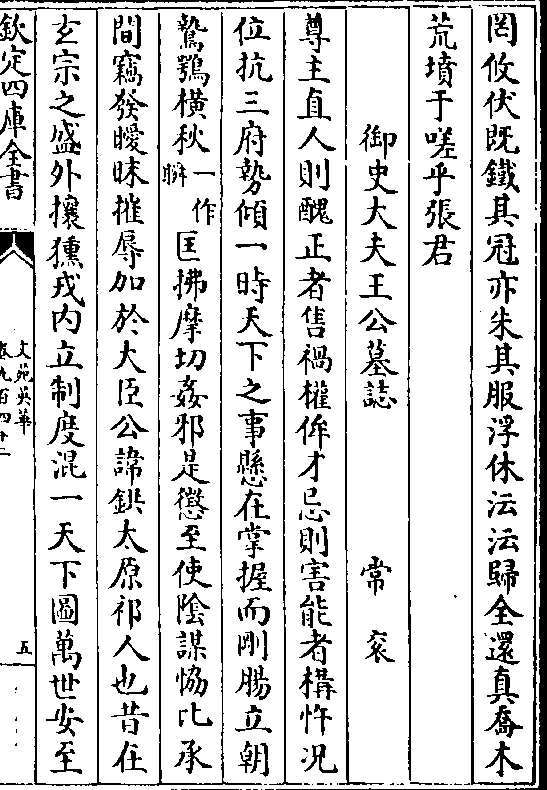 罔攸伏既鐵其冠亦朱其服浮休沄沄歸全還真喬木
荒墳于嗟乎張君
御史大夫王公墓誌 常衮
尊主直人則醜正者售禍權侔才忌則害能者構忤况
位抗三府勢傾一時天下之事懸在掌握而剛腸立朝
鷙鶚橫秋一作聨匡拂摩切姦邪是懲至使陰謀恊比承
間竊發曖昧摧辱加於大臣公諱鉷太原祁人也昔在
玄宗之盛外攘獯戎内立制度混一天下圖萬世安至
欽定四庫全書
文苑英華
卷九百四十二
五